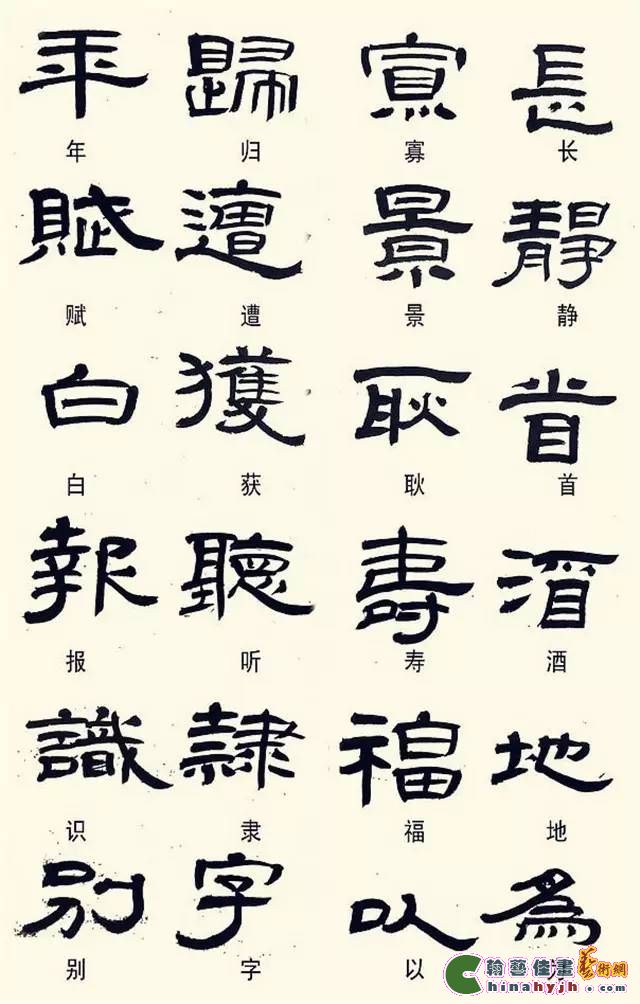 年 歸 寡 長
年 归 寡 长
賦 遭 景 靜
赋 遭 景 静
白 獲 耿 首
白 获 耿 首
報 聽 壽 酒
报 听 寿 酒
識 隸 福 地
识 隶 福 地
別 字 以 為
别 字 以
翰藝佳畫藝術網
Chinahyjh.com